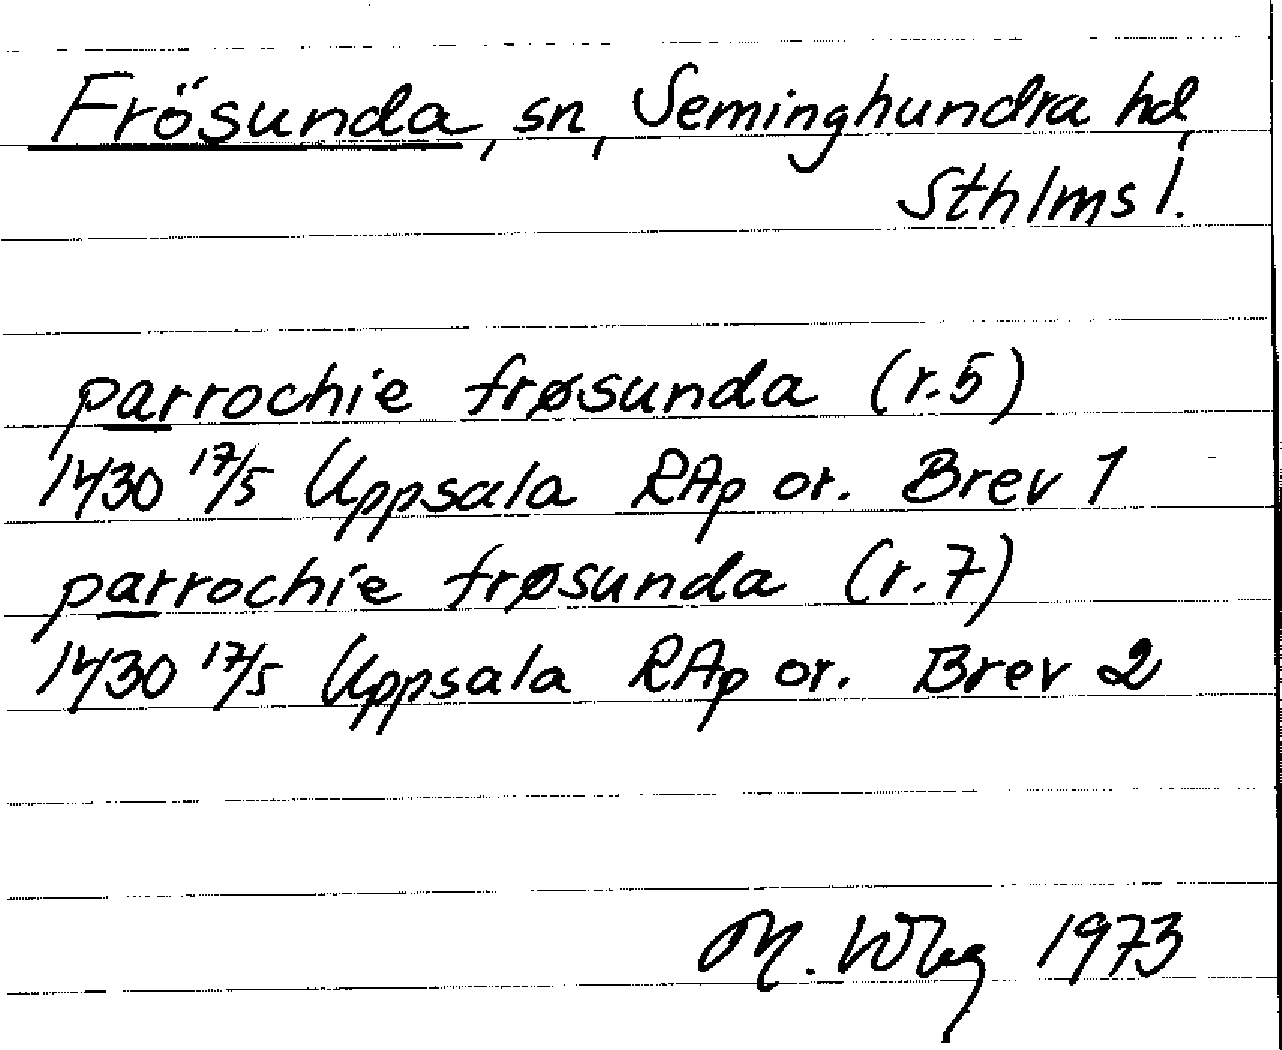 Frösunda, sn, Seminghundra hd,
Sthlms l.
parrochie frøsunda (r.5)
1430 17/5 Uppsala RAp or. Brev 1
parrochie frøsunda (r.7)
1430 17/5 Uppsala RAp or. Brev 2
M. Wbg 1973